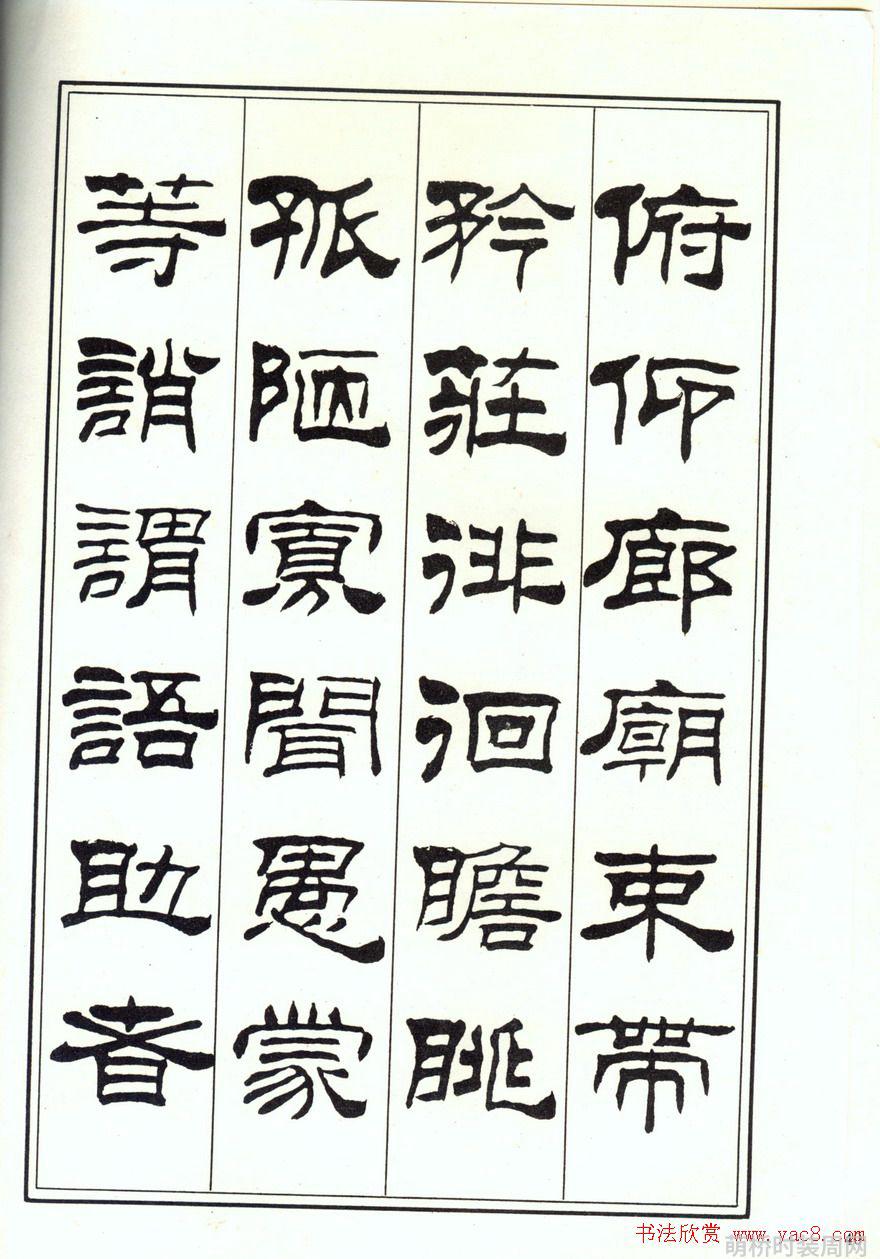 俯仰廊廟束帶
矜莊徘徊瞻眺
孤陋寡聞愚蒙
等誚謂語助者
书法欣赏 www.yac8.com
萌桥时装周网